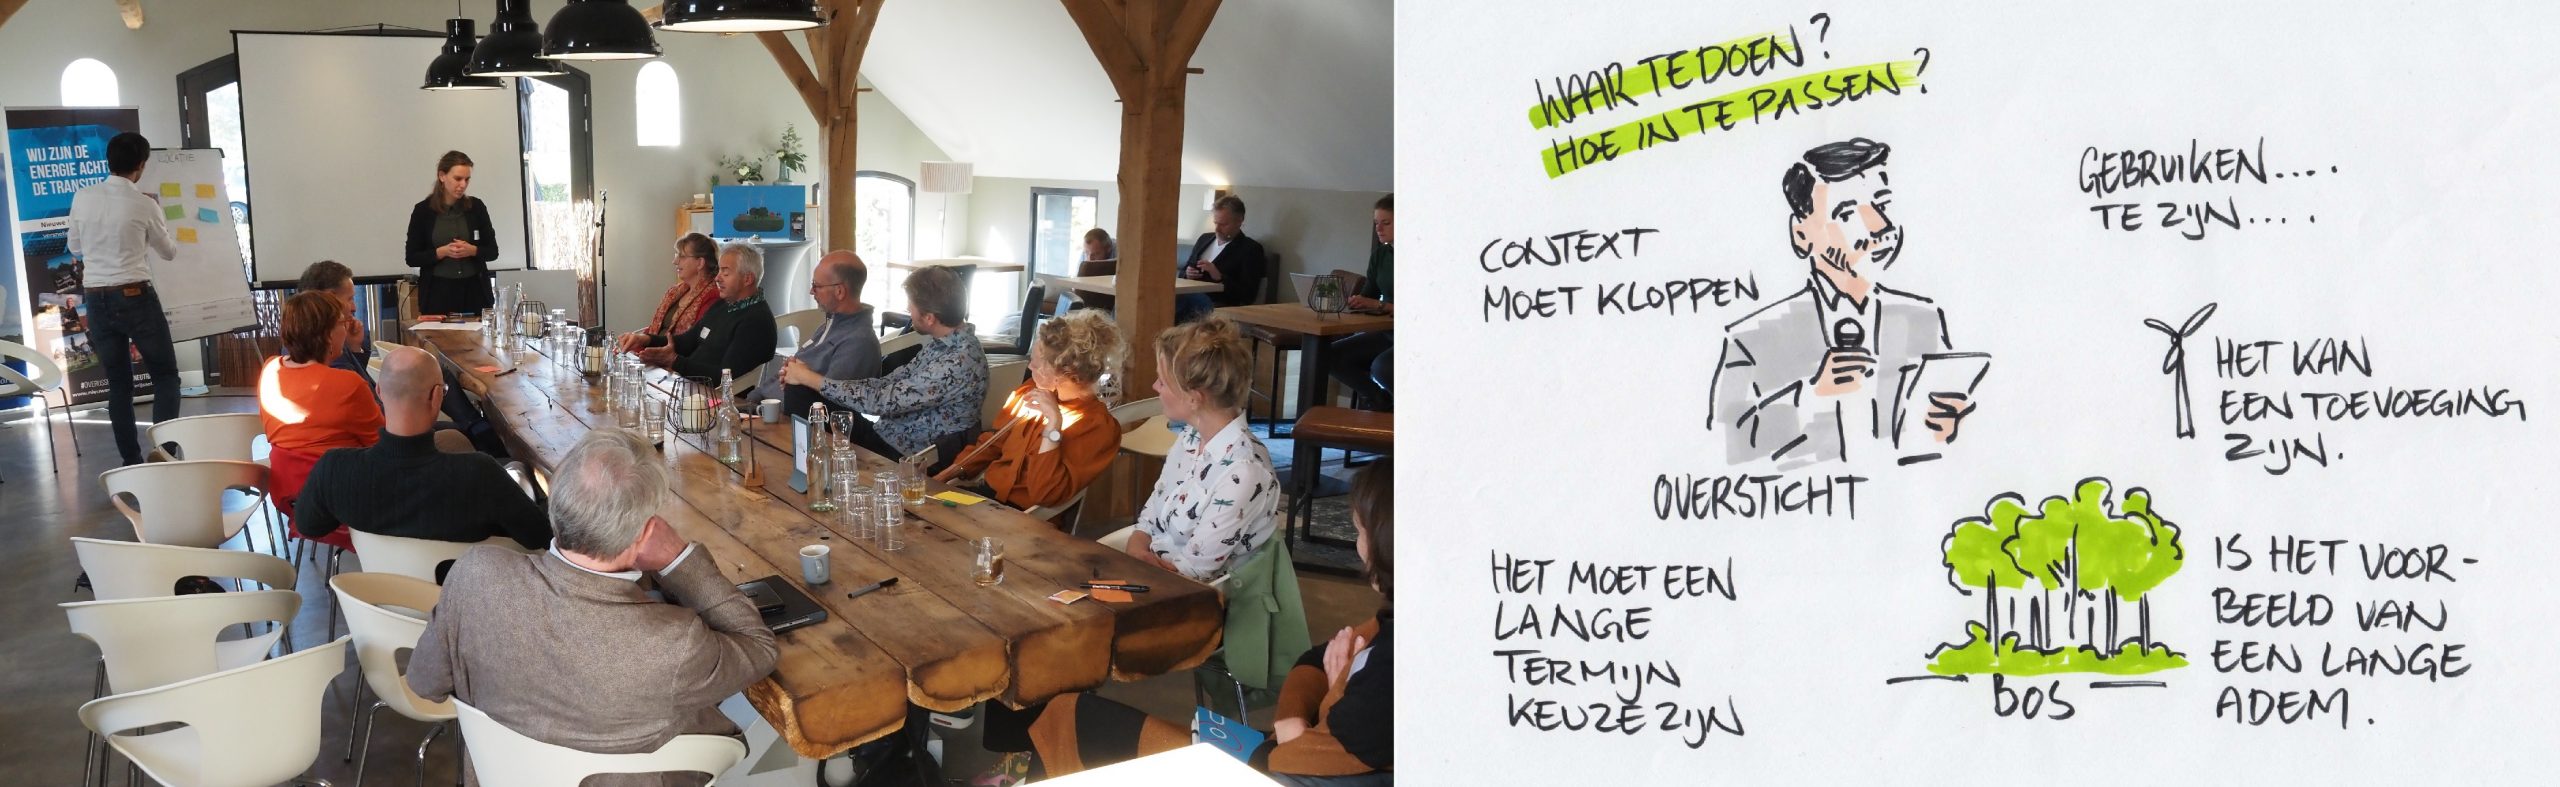 WIJ ZIJN DE
ENERGIE ACHT
DE TRANSITIE
Nieuwe
LOCATIE
WAAR TE DOEN?
HOE IN TE PASSEN?
CONTEXT
MOET KLOPPEN
OVERSTICHT
HET MOET EEN
LANGE
TERMIJN
KEUZE ZIJN
GEBRUIKEN....
TE ZIJN....
HET KAN
EEN TOEVOEGING
ZIJN.
BOS
IS HET VOOR-
BEELD VAN
EEN LANGE
ADEM.